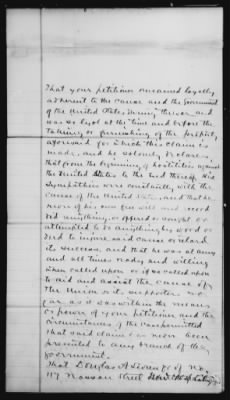 That your petitioner remained loyally
adherent to the cause and the Government
of the United States, during the war, and
was so loyal at the time and before the
taking or furnishing of the property
aforesaid for which this claim is
made, and he solemnly declares
that from the beginning of hostilities against
the United States to the end thereof his
sympathies were constantly with the
cause of the United States, and that he
never of his own free will and accord
did anything, or offered or sought or
attempted to do anything by word or
deed to injure said cause or retard
its success, and that he was at any
and all times ready and willing
when called upon or if so called upon
to aid and assist the cause of
the Union or its supporters so
far as it was within the means
or power of your petitioner and the
circumstances of the case permitted
That said claim has never been
presented to any branch of the
government.
That Douglas A of No.
117 Street